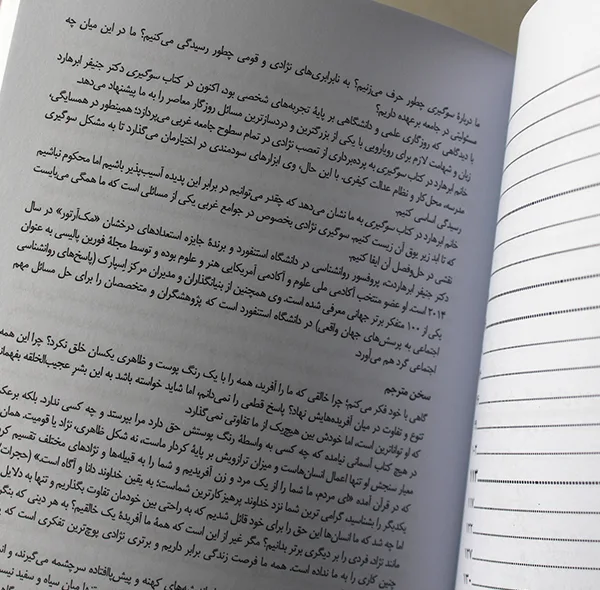 ما دربارهٔ سوگیری چطور حرف می‌زنیم؟ به نابرابری‌های نژادی و قومی چطور رسیدگی می‌کنیم؟ ما در این میان چه
مسئولیتی در جامعه برعهده داریم؟
با دیدگاهی که روزگاری علمی و دانشگاهی بر پایهٔ تجربه‌های شخصی بود، اکنون در کتاب سوگیری دکتر جنیفر ابرهارد
زبان و شهامت لازم برای رویارویی با یکی از بزرگترین و دردسازترین مسائل روزگار معاصر را به ما پیشنهاد می‌دهد.
خانم ابرهارد در کتاب سوگیری به پرده‌برداری از تعصب نژادی در تمام سطوح جامعه غربی می‌پردازد؛ همینطور در همسایگی،
مدرسه، محل کار و نظام عدالت کیفری. با این حال، وی ابزارهای سودمندی در اختیارمان می‌گذارد تا به مشکل سوگیری
رسیدگی اساسی کنیم.
خانم ابرهارد در کتاب سوگیری به ما نشان می‌دهد که چقدر می‌توانیم در برابر این پدیده آسیب‌پذیر باشیم اما محکوم نباشیم
که تا ابد زیر یوق آن زیست کنیم. سوگیری نژادی بخصوص در جوامع غربی یکی از مسائلی است که ما همگی می‌بایست
نقشی در حل‌وفصل آن ایفا کنیم.
دکتر جنیفر ابرهاردت، پروفسور روانشناسی در دانشگاه استنفورد و برندهٔ جایزه استعدادهای درخشان «مک‌آرتور» در سال
۲۰۱۴ است. او عضو منتخب آکادمی ملی علوم و آکادمی آمریکایی هنر و علوم بوده و توسط مجلهٔ فورین پالیسی به عنوان
یکی از ۱۰۰ متفکر برتر جهانی معرفی شده است. وی همچنین از بنیانگذاران و مدیران مرکز اسپارک (پاسخ‌های روانشناسی
اجتماعی به پرسش‌های جهان واقعی) در دانشگاه استنفورد است که پژوهشگران و متخصصان را برای حل مسائل مهم
اجتماعی گرد هم می‌آورد.
سخن مترجم
گاهی با خود فکر می‌کنم؛ چرا خالقی که ما را آفرید، همه را با یک رنگ پوست و ظاهری یکسان خلق نکرد؟ چرا این همه
تنوع و تفاوت در میان آفریده‌هایش نهاد؟ پاسخ قطعی را نمی‌دانم، اما شاید خواسته باشد به این بشر عجیب‌الخلقه بفهماند
که او تواناترین است، اما خودش بین هیچ‌یک از ما تفاوتی نمی‌گذارد.
در هیچ کتاب آسمانی نیامده که چه کسی به واسطهٔ رنگ پوستش حق دارد مرا بپرستد و چه کسی ندارد. بلکه برعکس
معیار سنجش او تنها اعمال انسان‌هاست و میزان ترازویش بر پایهٔ کردار ماست، نه شکل ظاهری، نژاد یا قومیت. همان
که در قرآن آمده «ای مردم، ما شما را از یک مرد و زن آفریدیم و شما را به قبیله‌ها و نژادهای مختلف تقسیم کر
یکدیگر را بشناسید، گرامی ترین شما نزد خداوند پرهیزکارترین شماست؛ به یقین خداوند دانا و آگاه است.» (حجرات/
اما چه شد که ما انسان‌ها این حق را برای خود قائل شدیم که به راحتی بین خودمان تفاوت بگذاریم و تنها به دلایل
مانند نژاد، فردی را بر دیگری برتر بدانیم؟ مگر غیر از این است که همهٔ ما آفریدهٔ یک خالقیم؟ به هر دینی که بنگر
چنین کاری را به ما نداده است. همه ما فرصت زندگی برابر داریم و برتری نژادی پوچ‌ترین تفکری است که
های کهنه و پیش‌پاافتاده سرچشمه می‌گیرند و
میان سیاه و سفید نیست
۱۱۳
۱۱۷